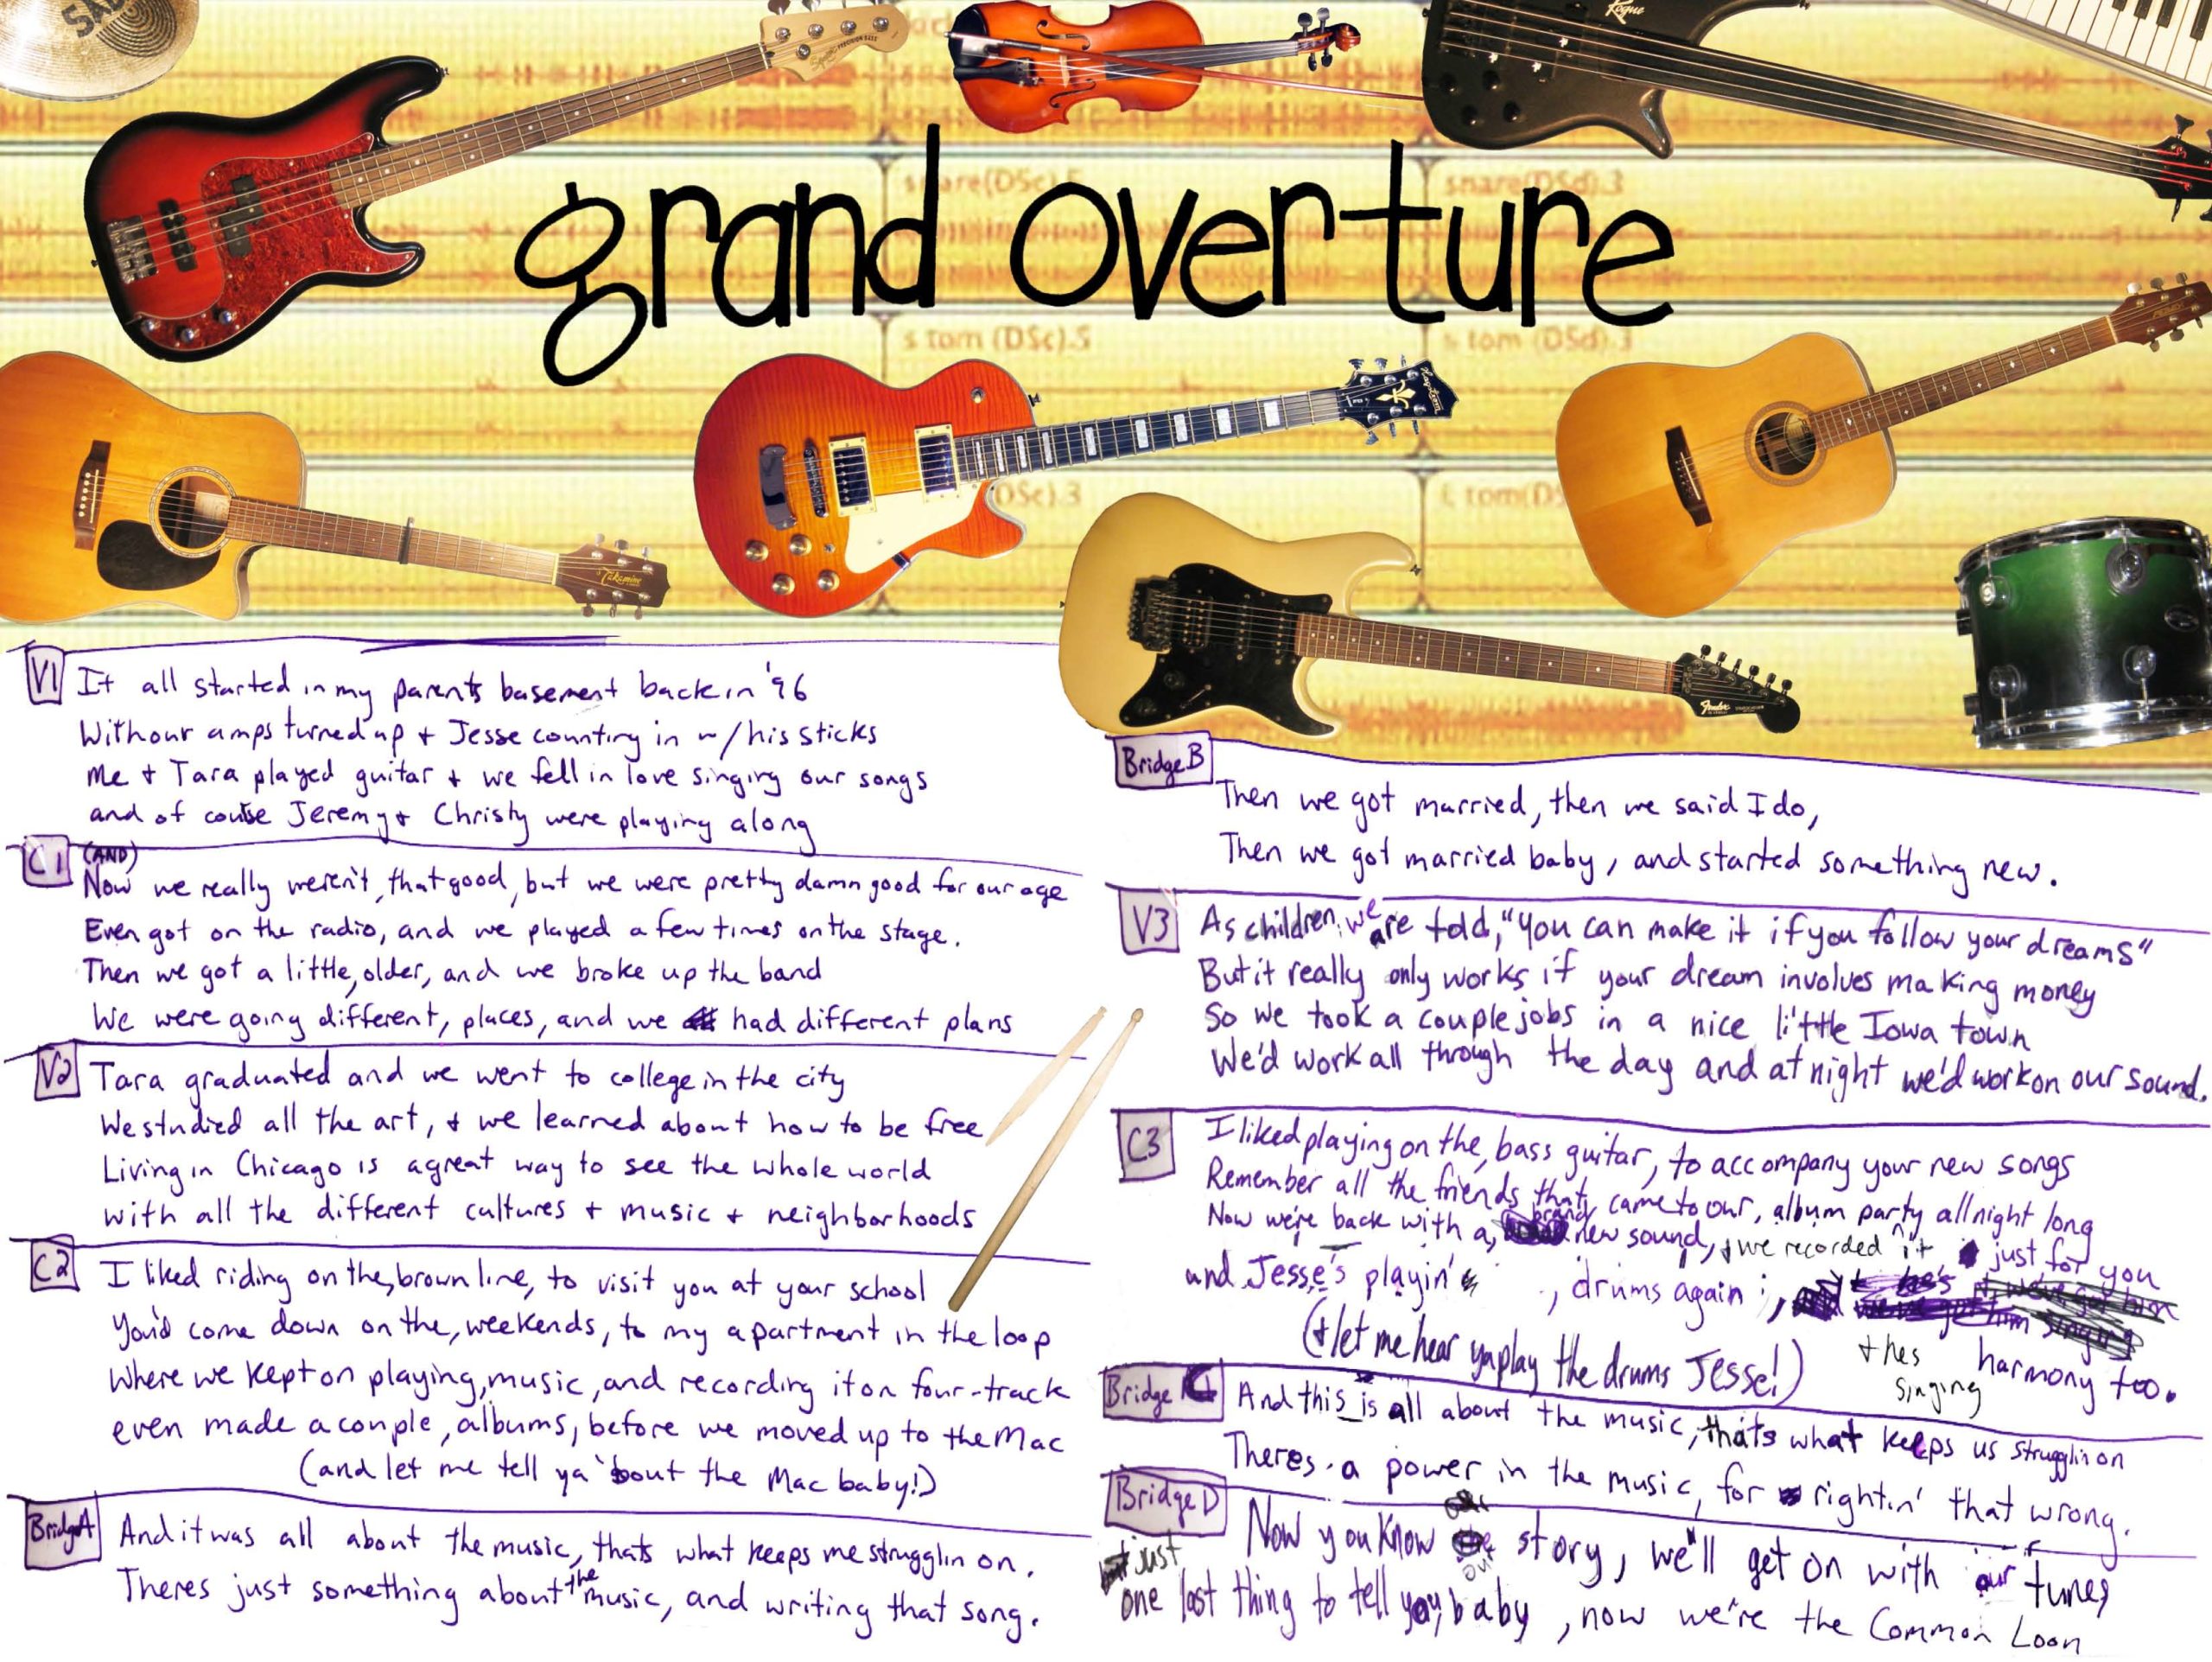 SAB
Rogue
grand overture
snare(DSc).5
snare(DSd).3
s tom (DSc).5
s tom (DSd).3
DSc).3
tom(DS
PRECISION BASS
Hagstrom
Takamine
Fender
V1 It all started in my parents basement back in '96
With our amps turned up + Jesse counting in w/ his sticks
Me + Tara played guitar + we fell in love singing our songs
and of course Jeremy + Christy were playing along
C1 (AND)
Now we really weren't, that good, but we were pretty damn good for our age
Even got on the radio, and we played a few times on the stage.
Then we got a little, older, and we broke up the band
We were going different, places, and we had different plans
V2 Tara graduated and we went to college in the city
We studied all the art, + we learned about how to be free
Living in Chicago is a great way to see the whole world
with all the different cultures + music + neighborhoods
C2 I liked riding on the, brown line, to visit you at your school
You'd come down on the, weekends, to my apartment in the loop
Where we kept on playing, music, and recording it on four-track
even made a couple, albums, before we moved up to the Mac
(and let me tell ya 'bout the Mac baby!)
Bridge A And it was all about the music, thats what keeps me strugglin on.
Theres just something about the music, and writing that song.
Bridge B
Then we got married, then we said I do,
Then we got married baby, and started something new.
V3 As children, we are told, "you can make it if you follow your dreams"
But it really only works if your dream involves making money
So we took a couple jobs in a nice little Iowa town
We'd work all through the day and at night we'd work on our sound.
C3 I liked playing on the, bass guitar, to accompany your new songs
Remember all the friends that, came to our, album party all night long
Now we're back with a, brand new sound, + we recorded it just for you
and Jesse's playin' , drums again ,
+ hes singing harmony too.
(+ let me hear ya play the drums Jesse!)
Bridge C And this is all about the music, thats what keeps us strugglin on
Theres a power in the music, for rightin' that wrong.
Bridge D Now you know our story, we'll get on with our tunes
just one last thing to tell you, baby, now we're the Common Loon